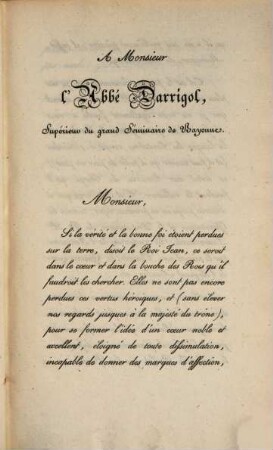 A Monsieur
l'Abbé Darrigol,
Supérieur du grand Séminaire de Bayonne.
Monsieur,
Si la vérité et la bonne foi étoient perdues
sur la terre, disoit le Roi Jean, ce seroit
dans le cœur et dans la bouche des Rois qu'il
faudroit les chercher. Elles ne sont pas encore
perdues ces vertus héroïques, et (sans élever
nos regards jusques à la majesté du trône),
pour se former l'idée d'un cœur noble et
excellent, éloigné de toute dissimulation,
incapable de donner des marques d'affection,